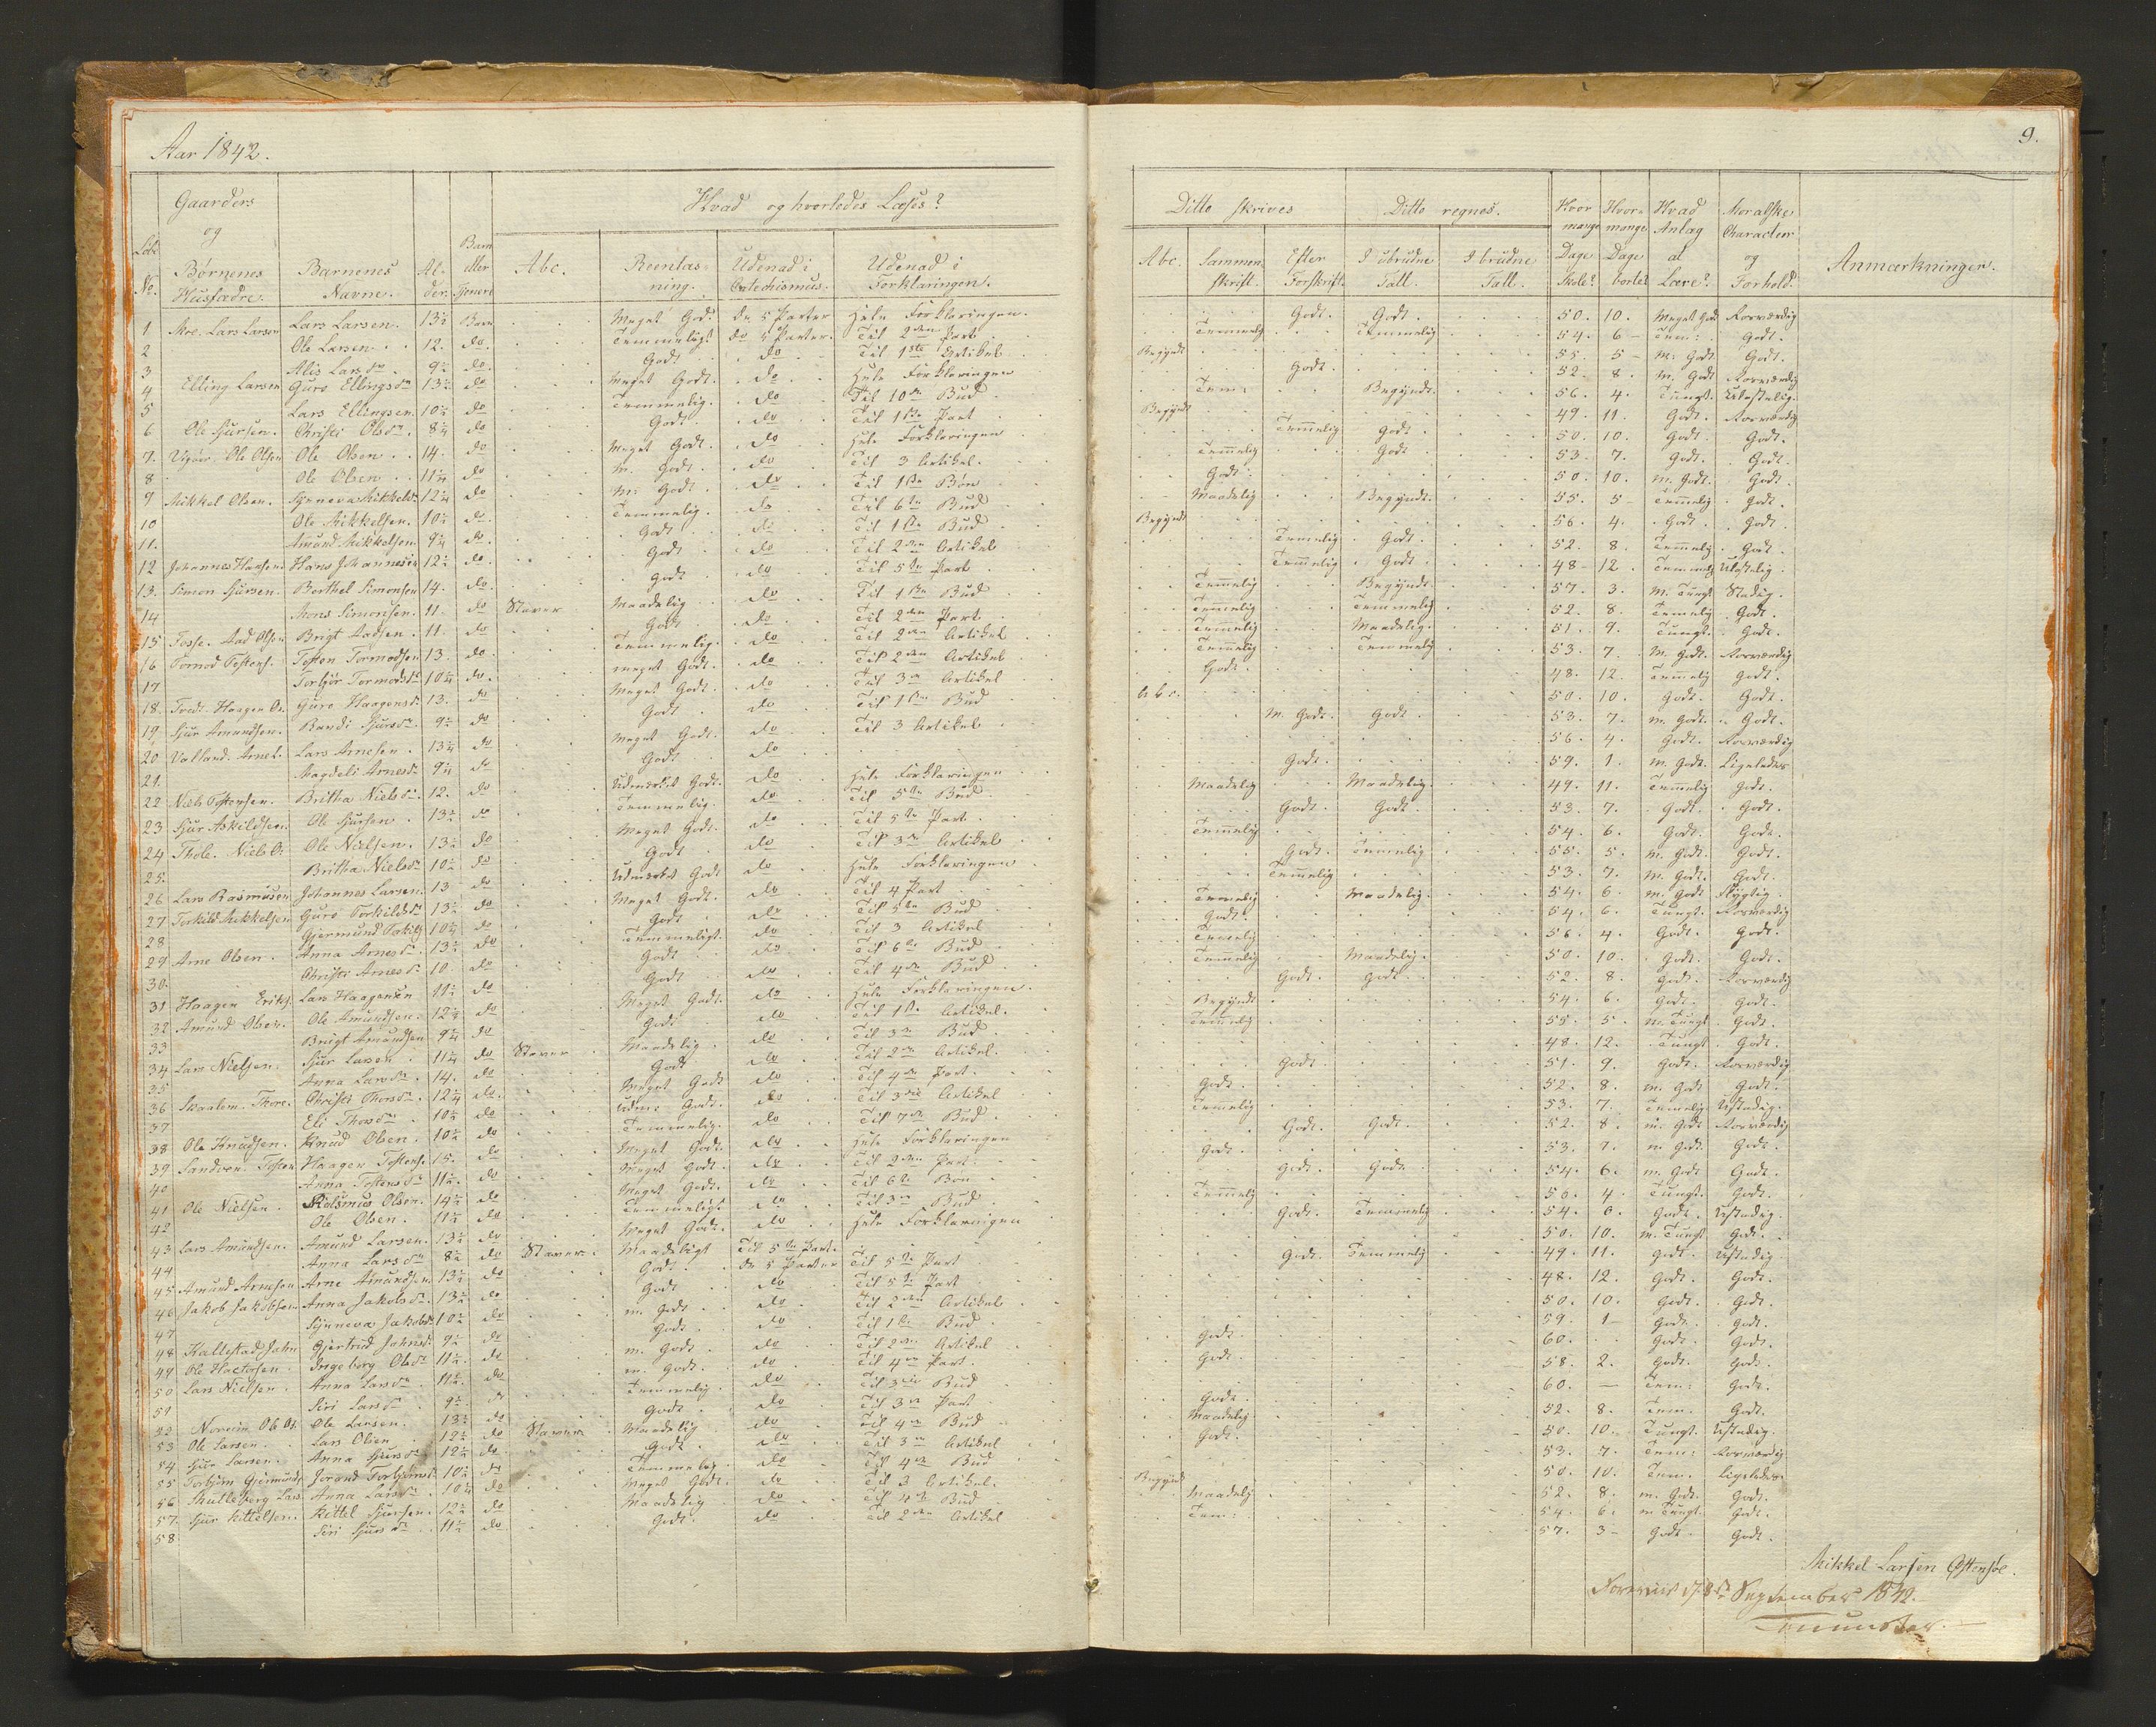 Aar 1842.
9.
Løbe No.
Gaarders og Børnenes Husfædre.
Barnenes Navne.
Alder.
Barn eller Tjener
Hvad og hvorledes Læses?
Abc.
Reenlæsning.
Udenad i Catechismus.
Udenad i Forklaringen.
Ditto skrives
Abc.
Sammenskrift.
Efter Forskrift.
Ditto regnes.
I ubrudne Tall.
I brudne Tall.
Hvor mange Dage Skole?
Hvor mange Dage borte?
Hvad Anlag at Lære?
Moralske Character og Forhold.
Anmærkninger.
1 Moe. Lars Larsen Lars Larsen. 13½ Barn Meget Godt De 5 Parter Hele Forklaringen. Godt. Godt. 50. 10. Meget Godt Rosværdig
2 Ole Larsen. 12. do. Temmeligt do 5 Parter. Til 2den Part Temmelig Temmelig 54. 6 Tem: Godt.
3 Alis Larsdr. 9½ do. Godt do Til 1ste Artikel Begyndt 55. 5 M: Godt Godt.
4 Elling Larsen Guro Ellingsdr 13½ do Meget Godt. do Hele Forklaringen Godt. 52. 8. M. Godt Rosværdig
5 Lars Ellingsen. 10½ do Temmelig. do Til 10de Bud Tem: Begyndt 56. 4. Tungt. Ulastelig.
6 Ole Sjursen. Christi Olsdr. 8¾ do Godt. do Til 1ste Part Begyndt 49. 11. Godt. Rosværdig
7. Ole Olsen Ole Olsen. 14. do Meget Godt. do Hele Forklaringen Temmelig Godt 50. 10. Godt. Godt.
8 Ole Olsen 11¼ do M. Godt. do Til 3 Artikel. Temmelig Godt 53. 7. Godt. Godt.
9 Mikkel Olsen. Synneva Mikkelsdr 12¼ do M: Godt. do Til 1ste Bøn Godt. 50. 10. M. Godt. Godt.
10 Ole Mikkelsen. 10½ do Temmelig. do Til 6te Bud Maadelig Begyndt. 55. 5 Temmelig Godt.
11. Amund Mikkelsen 9¼ do. Godt do Til 1ste Bud Begyndt 56. 4. Godt. Godt.
12 Johannes Hansen Hans Johannesen 12½ do. Godt do Til 2den Artikel Temmelig Godt. 52. 8. Temmelig Godt.
13. Simon Sjursen. Berthel Simonsen 14. do. Godt do Til 5te Part Temmelig Godt 48 12. Temmelig Ulastelig.
14 Mons Simonsen. 11. do Staver Maadelig do Til 1ste Bud Temmelig Begyndt. 57. 3. M. Tungt Stadig.
15 Fosse. Aad Olsen Brigt Aadsen. 11. do Godt do Til 2den Part Temmelig Temmelig 52. 8. Temmelig Godt.
16 Tormod Tostens. Tosten Tormodsen 13. do. Temmelig. do Til 2den Artikel Temmelig Maadelig. 51. 9. Tungt. Godt.
17 Torbjør Tormodsdr 10¼ do. Meget Godt. do Til 2den Artikel Temmelig Temmelig 53. 7. M. Godt. Rosværdig
18. Tvedt. Haagen Ol. Guro Haagensdr. 13. do Meget Godt. do Til 3die Artikel Godt. 48. 12. Temmelig Godt.
19. Sjur Amundsen. Randi Sjursdr. 9½ do Godt do Til 1ste Bud Abc. 50. 10. Godt. Godt.
20 Valland. Arne L. Lars Arnesen. 13¼ do Meget Godt. do Til 3 Artikel M. Godt. Godt 53. 7. M. Godt. Godt.
21. Magdeli Arnesdr 9¼ do Godt do 56. 4. Godt. Rosværdig
22 Niels Tostensen. Britha Nielsdr. 12. do Udmærket Godt. do Hele Forklaringen Godt. 59. 1. M. Godt. Ligeledes
23 Sjur Askildsen. Ole Sjursen. 13½ do Temmelig. do Til 5te Bud Maadelig Maadelig. 49. 11. Temmelig Godt.
24 Niels O. Ole Nielsen. 13½ do Meget Godt. do Til 5te Part Godt Godt 53. 7. Godt. Godt.
25. Britha Nielsdr 10½ do Godt do Til 3die Artikel Temmelig 54. 6. Godt. Godt.
26 Lars Rasmusen Johannes Larsen. 13 do Udmærket Godt do Hele Forklaringen Godt. Temmelig 55. 5. M. Godt. Godt.
27 Torkild Mikkelsen Guro Torkildsdr 13½ do Meget Godt. do Til 4 Part Temmelig 53. 7. M. Godt. Godt.
28 Gjermund Torkils 10¼ do Godt do Til 5te Bud Temmelig Maadelig. 54. 6. M. Godt Flygtig.
29 Arne Olsen. Anna Arnesdr. 13½ do Temmeligt. do Til 3 Artikel Godt. 54. 6. Tungt. Rosværdig
30. Christi Arnesdr 10. do Godt do Til 6te Bud Temmelig 56. 4. Godt. Godt.
31 Haagen Eriks. Lars Haagensen 11½ do Godt do Til 4de Bud Temmelig Maadelig. 50. 10. Godt. Godt.
32 Amund Olsen. Ole Amundsen. 12¼ do Meget Godt. do Hele Forklaringen. Godt Godt 52. 8. Godt. Rosværdig
33 Brigt Amundsen 9¾ do Godt do Til 1ste Artikel. Begyndt 54. 6. Godt. Godt.
34 Lars Nielsen. Sjur Larsen. 11¼ do Staver Maadelig do Til 3die Bud Temmelig 55. 5. M. Tungt Godt.
35 Anna Larsdr. 14. do Godt do Til 2den Artikel. 48. 12. Tungt Godt.
36 Skaalem. Thore. Christi Thorsdr. 12¼ do. Meget Godt do Til 4de Part. Godt. 51. 9. Godt. Rosværdig
37 Eli Thorsdr. 10½ do Udm: Godt. do Til 3die Artikel Godt. 52. 8. M. Godt Godt.
38 Ole Knudsen. Knud Olsen. 10½ do Temmelig. do Til 7de Bud Temmelig 53. 7. Temmelig Ustadig.
39 Sandven. Tosten Haagen Tostens. 15. do Meget Godt. do Hele Forklaringen Godt. Godt. 52. 8. M. Godt Rosværdig
40 Anna Tostensdr 11½ do Meget Godt. do Til 2den Part. Godt. 53. 7. M. Godt. Godt.
41 Ole Nielsen. Olsen. 14½ do Meget Godt. do Til 6te Bøn Godt. Godt. 54. 6. M. Godt Godt.
42 Ole Olsen. 11½ do Temmeligt do Til 3die Bud Temmelig 56. 4. Tungt. Godt.
43 Lars Amundsen. Amund Larsen. 13½ do Meget Godt. do Hele Forklaringen Godt. Temmelig 54. 6. Godt. Ustadig.
44 Anna Larsdr 8½ do Staver Maadeligt Til 5te Part. 50. 10. M. Tungt Godt.
45 Amund Arnesen Arne Amundsen. 13½ do Godt. De 5 Parter Til 5te Part Godt. Temmelig 49. 11. Godt. Ustadig.
46 Jakob Jakobsen Anna Jakobsdr. 13½ do Godt do Til 5te Part 48. 12. Godt. Godt.
47 Synneva Jakobsdr 10½ do M. Godt do Til 2den Artikel 50. 10. Godt. Godt.
48 Kallestad Jahn Gjertrud Jahnsdr 9½ do Godt. do Til 1ste Bud 59. 1 Godt. Godt.
49 Ole Ingeborg Olsdr 11½. do M. Godt do Til 2den Artikel Godt. 60. Godt. Godt.
50 Lars Nielsen. Anna Larsdr. 11½. do M. Godt. do Til 4de Part. Godt. 58. 2. Godt. Godt.
51 Siri Larsdr 9½. do Temmelig. do Til 3die Bud 60. — Tem: Godt.
52 Noreim Ole Ol. Ole Larsen. 13½ do Godt. do Til 3die Part Godt. 52. 8. Tem. Godt.
53 Ole Larsen. Lars Olsen 12½ do Staver Maadelig do Til 4de Bud Maadelig 50. 10. Tungt. Ustadig.
54 Sjur Larsen. Anna Sjursdr 12½ do. Godt. do Til 3die Artikel Godt. 53. 7. Tem: Rosværdig
55 Torbjørn Gjermunds Torbjørnsdr 10½ do Temmelig. do Til 4de Bud 50. 10. Tem. Ligeledes.
56 Skutleberg Lars Anna Larsdr 10¼ do Meget Godt. do Til 3 Artikel. Begyndt 52. 8. M. Godt. Godt.
57. Sjur Kittelsen. Kittel Sjursen. 12½ do Maadelig do Til 4de Bud Maadelig 54. 6. M. Tungt. Godt.
58 Siri Sjursdr 11½ do Godt. do Til 2den Artikel Tem: 57. 3 Godt. Godt.
Mikkel Larsen Østensøe.
Foreviist d. 8de September 1842.